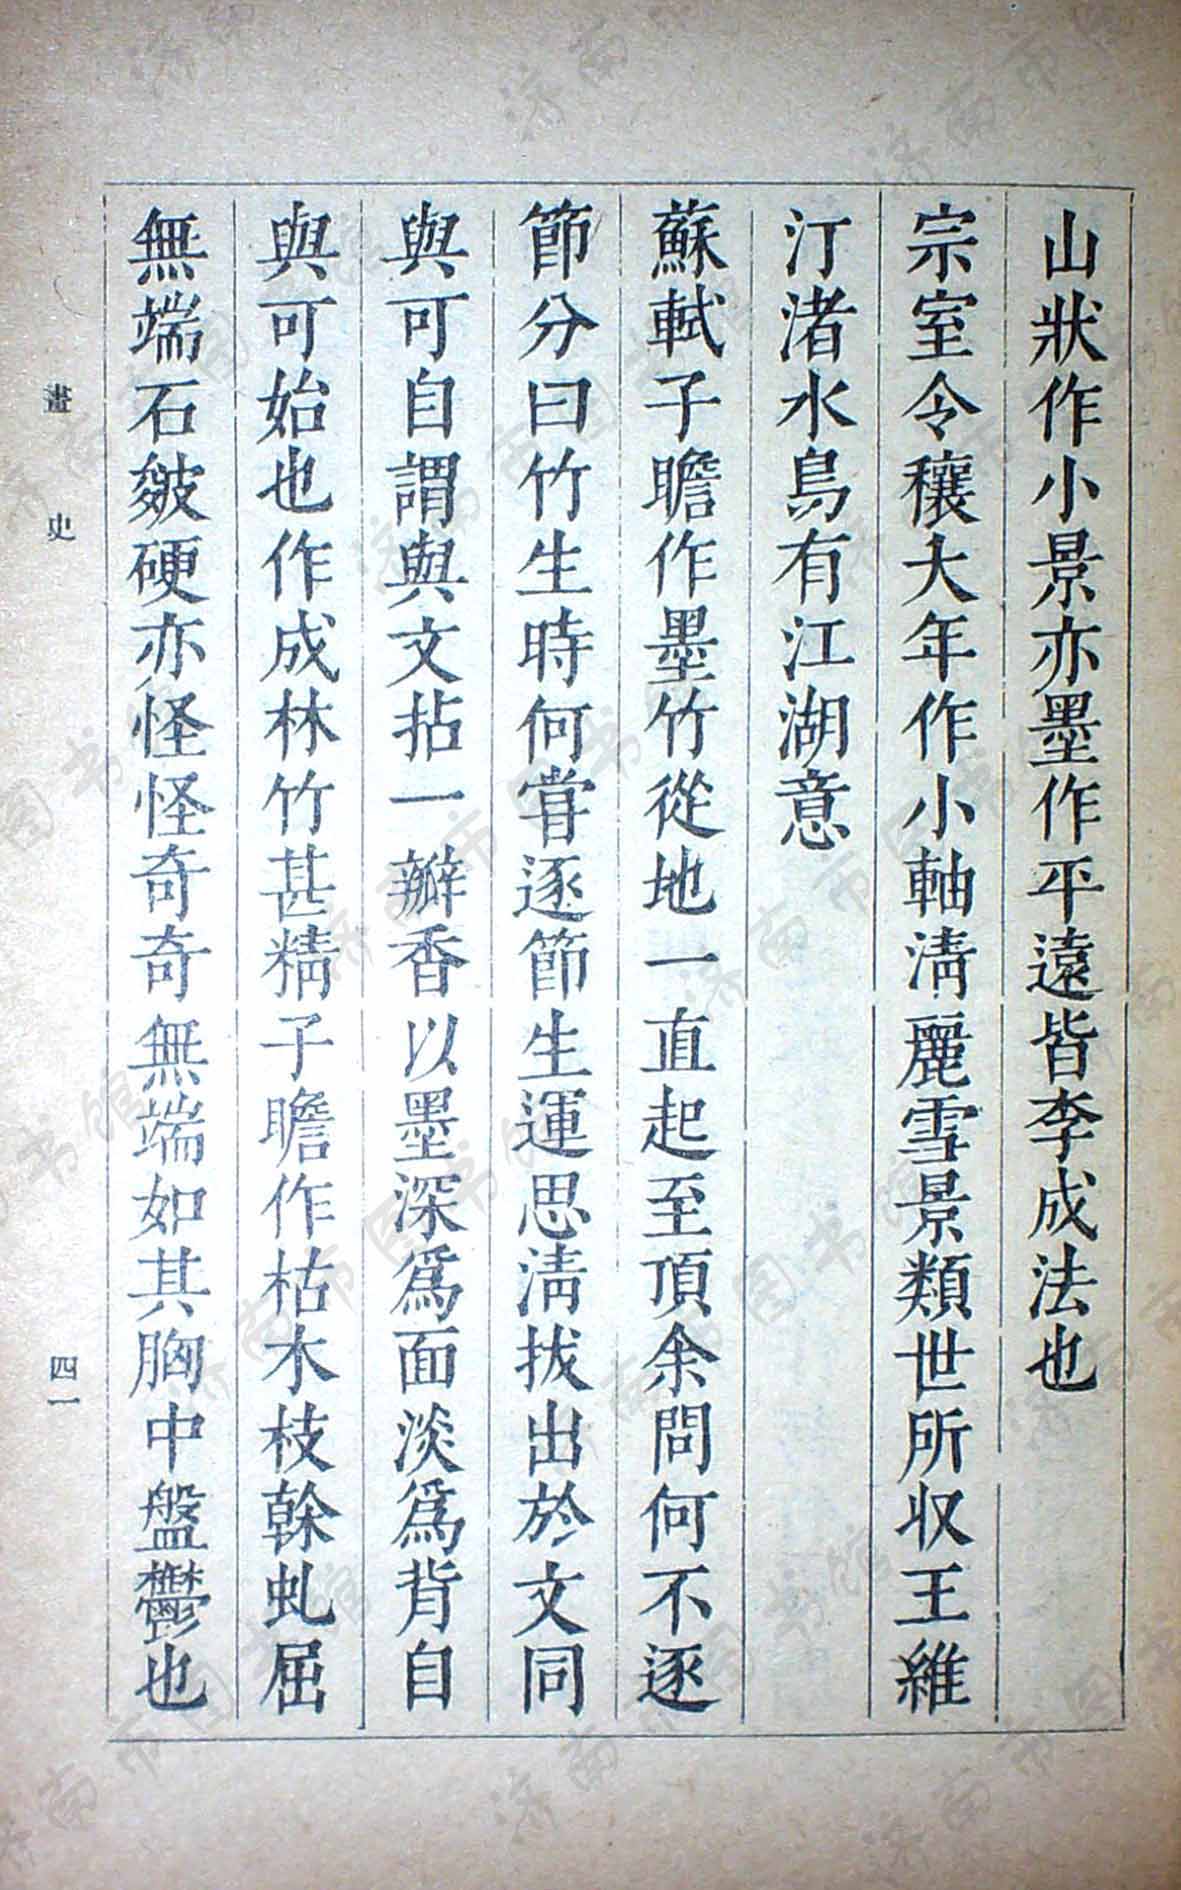 山狀作小景亦墨作平遠皆李成法也
宗室令穰大年作小軸淸麗雪景類世所收王維
汀渚水鳥有江湖意
蘇軾子瞻作墨竹從地一直起至頂余問何不逐
節分曰竹生時何嘗逐節生運思淸拔出於文同
與可自謂與文拈一瓣香以墨深爲面淡爲背自
與可始也作成林竹甚精子瞻作枯木枝榦虬屈
無端石皴硬亦怪怪奇奇無端如其胸中盤鬱也
畫史
四一
济南市图书馆